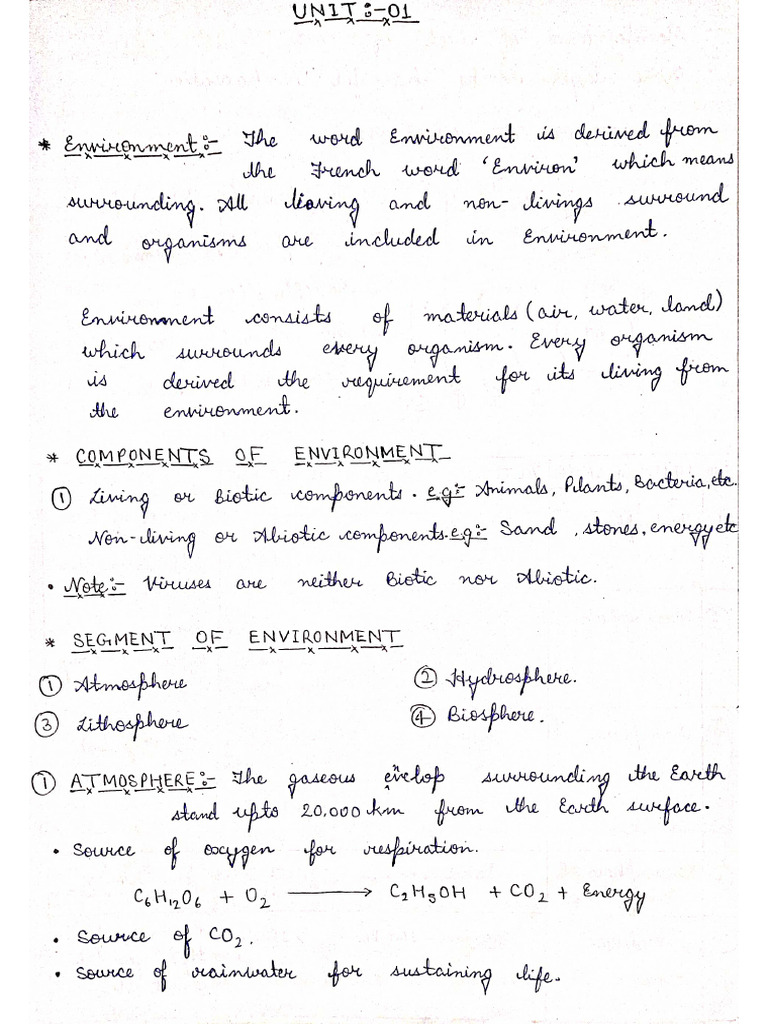 UNIT:-01
* Environment:- The word Environment is derived from
the French word 'Environ' which means
surrounding. All lioving and non-livings surround
and organisms are included in Environment.
Environment consists of materials (air, water, land)
which surrounds every organism. Every organism
is derived the requirement for its living from
the environment.
* COMPONENTS OF ENVIRONMENT
① Living or Biotic components. e.g:- Animals, Plants, Bacteria, etc.
Non-living or Abiotic components. e.g:- Sand, stones, energy etc
• Note:- Viruses are neither Biotic nor Abiotic.
* SEGMENT OF ENVIRONMENT
① Atmosphere ② Hydrosphere.
③ Lithosphere ④ Biosphere.
① ATMOSPHERE:- The gaseous envelop surrounding the Earth
stand upto 20,000 km from the Earth surface.
• Source of oxygen for respiration.
C₆H₁₂O₆ + O₂ ⟶ C₂H₅OH + CO₂ + Energy
• Source of CO₂.
• Source of rainwater for sustaining life.